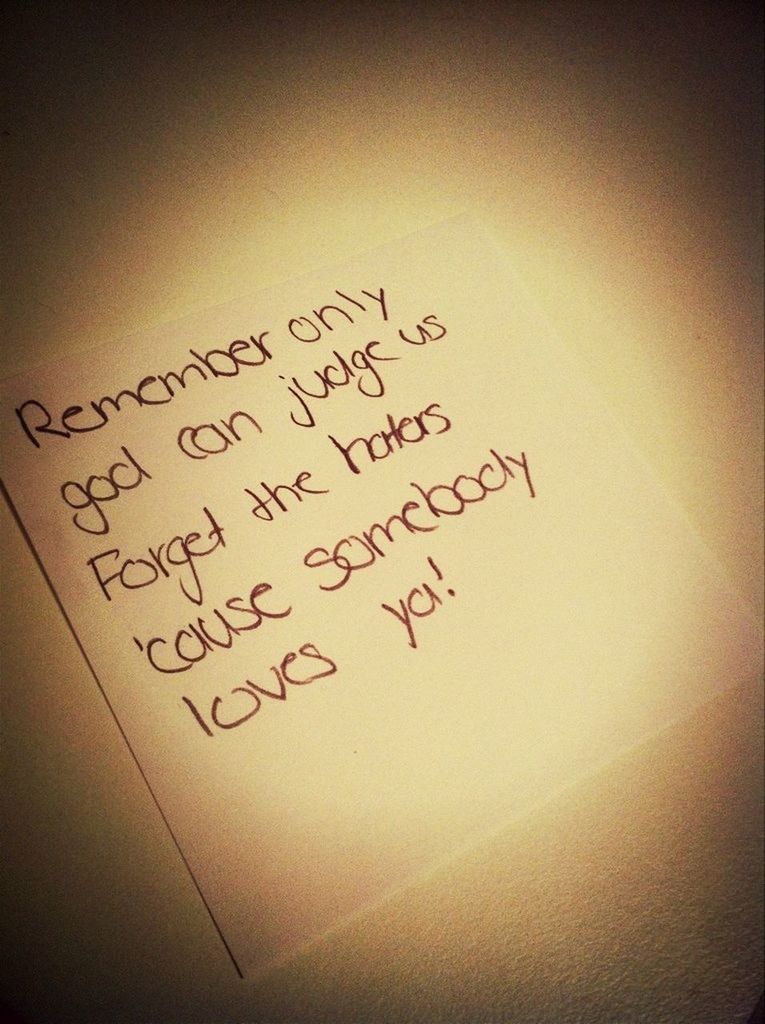 Remember only
god can judge us
Forget the haters
'cause somebody
loves ya!